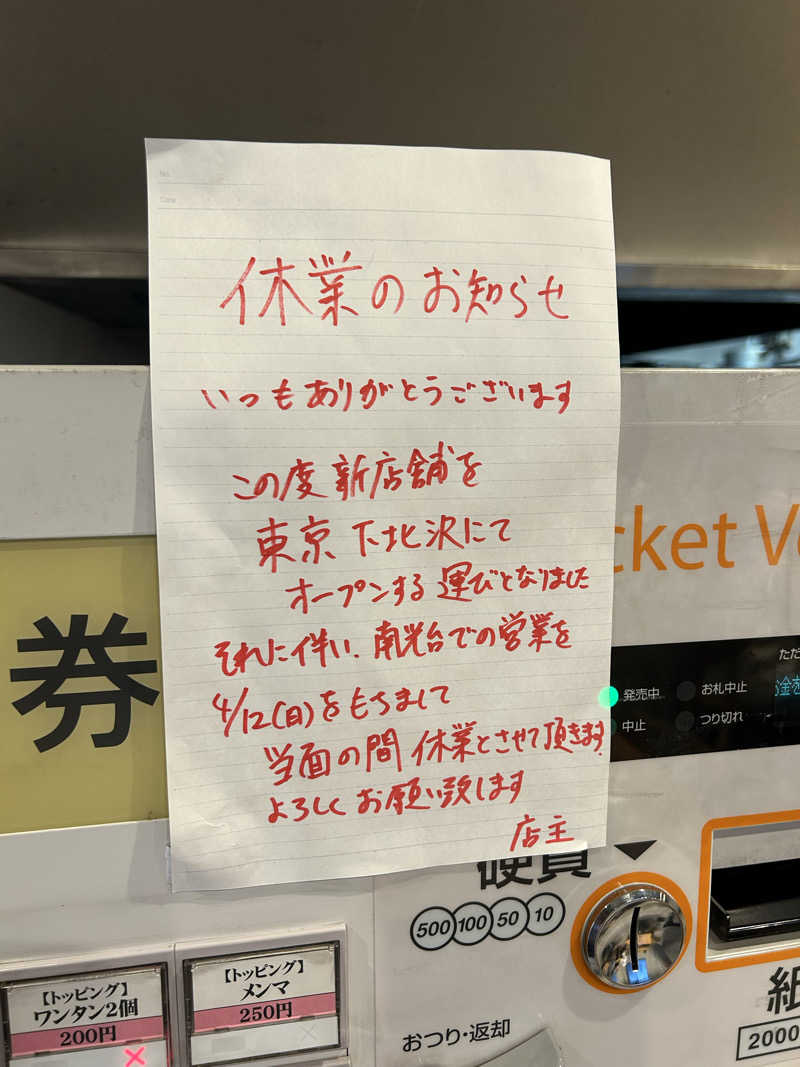 No.
Date
休業のお知らせ
いつもありがとうございます
この度新店舗を
東京 下北沢にて
オープンする運びとなりました
それに伴い、南光台での営業を
4/12(日)をもちまして
当面の間 休業とさせて頂きます.
よろしくお願い致します
店主
cket V
券
ただ
発売中
お札中止
中止
つり切れ
硬貨
500 100 50 10
おつり・返却
紙
2000
【トッピング】
ワンタン2個
200円
【トッピング】
メンマ
250円